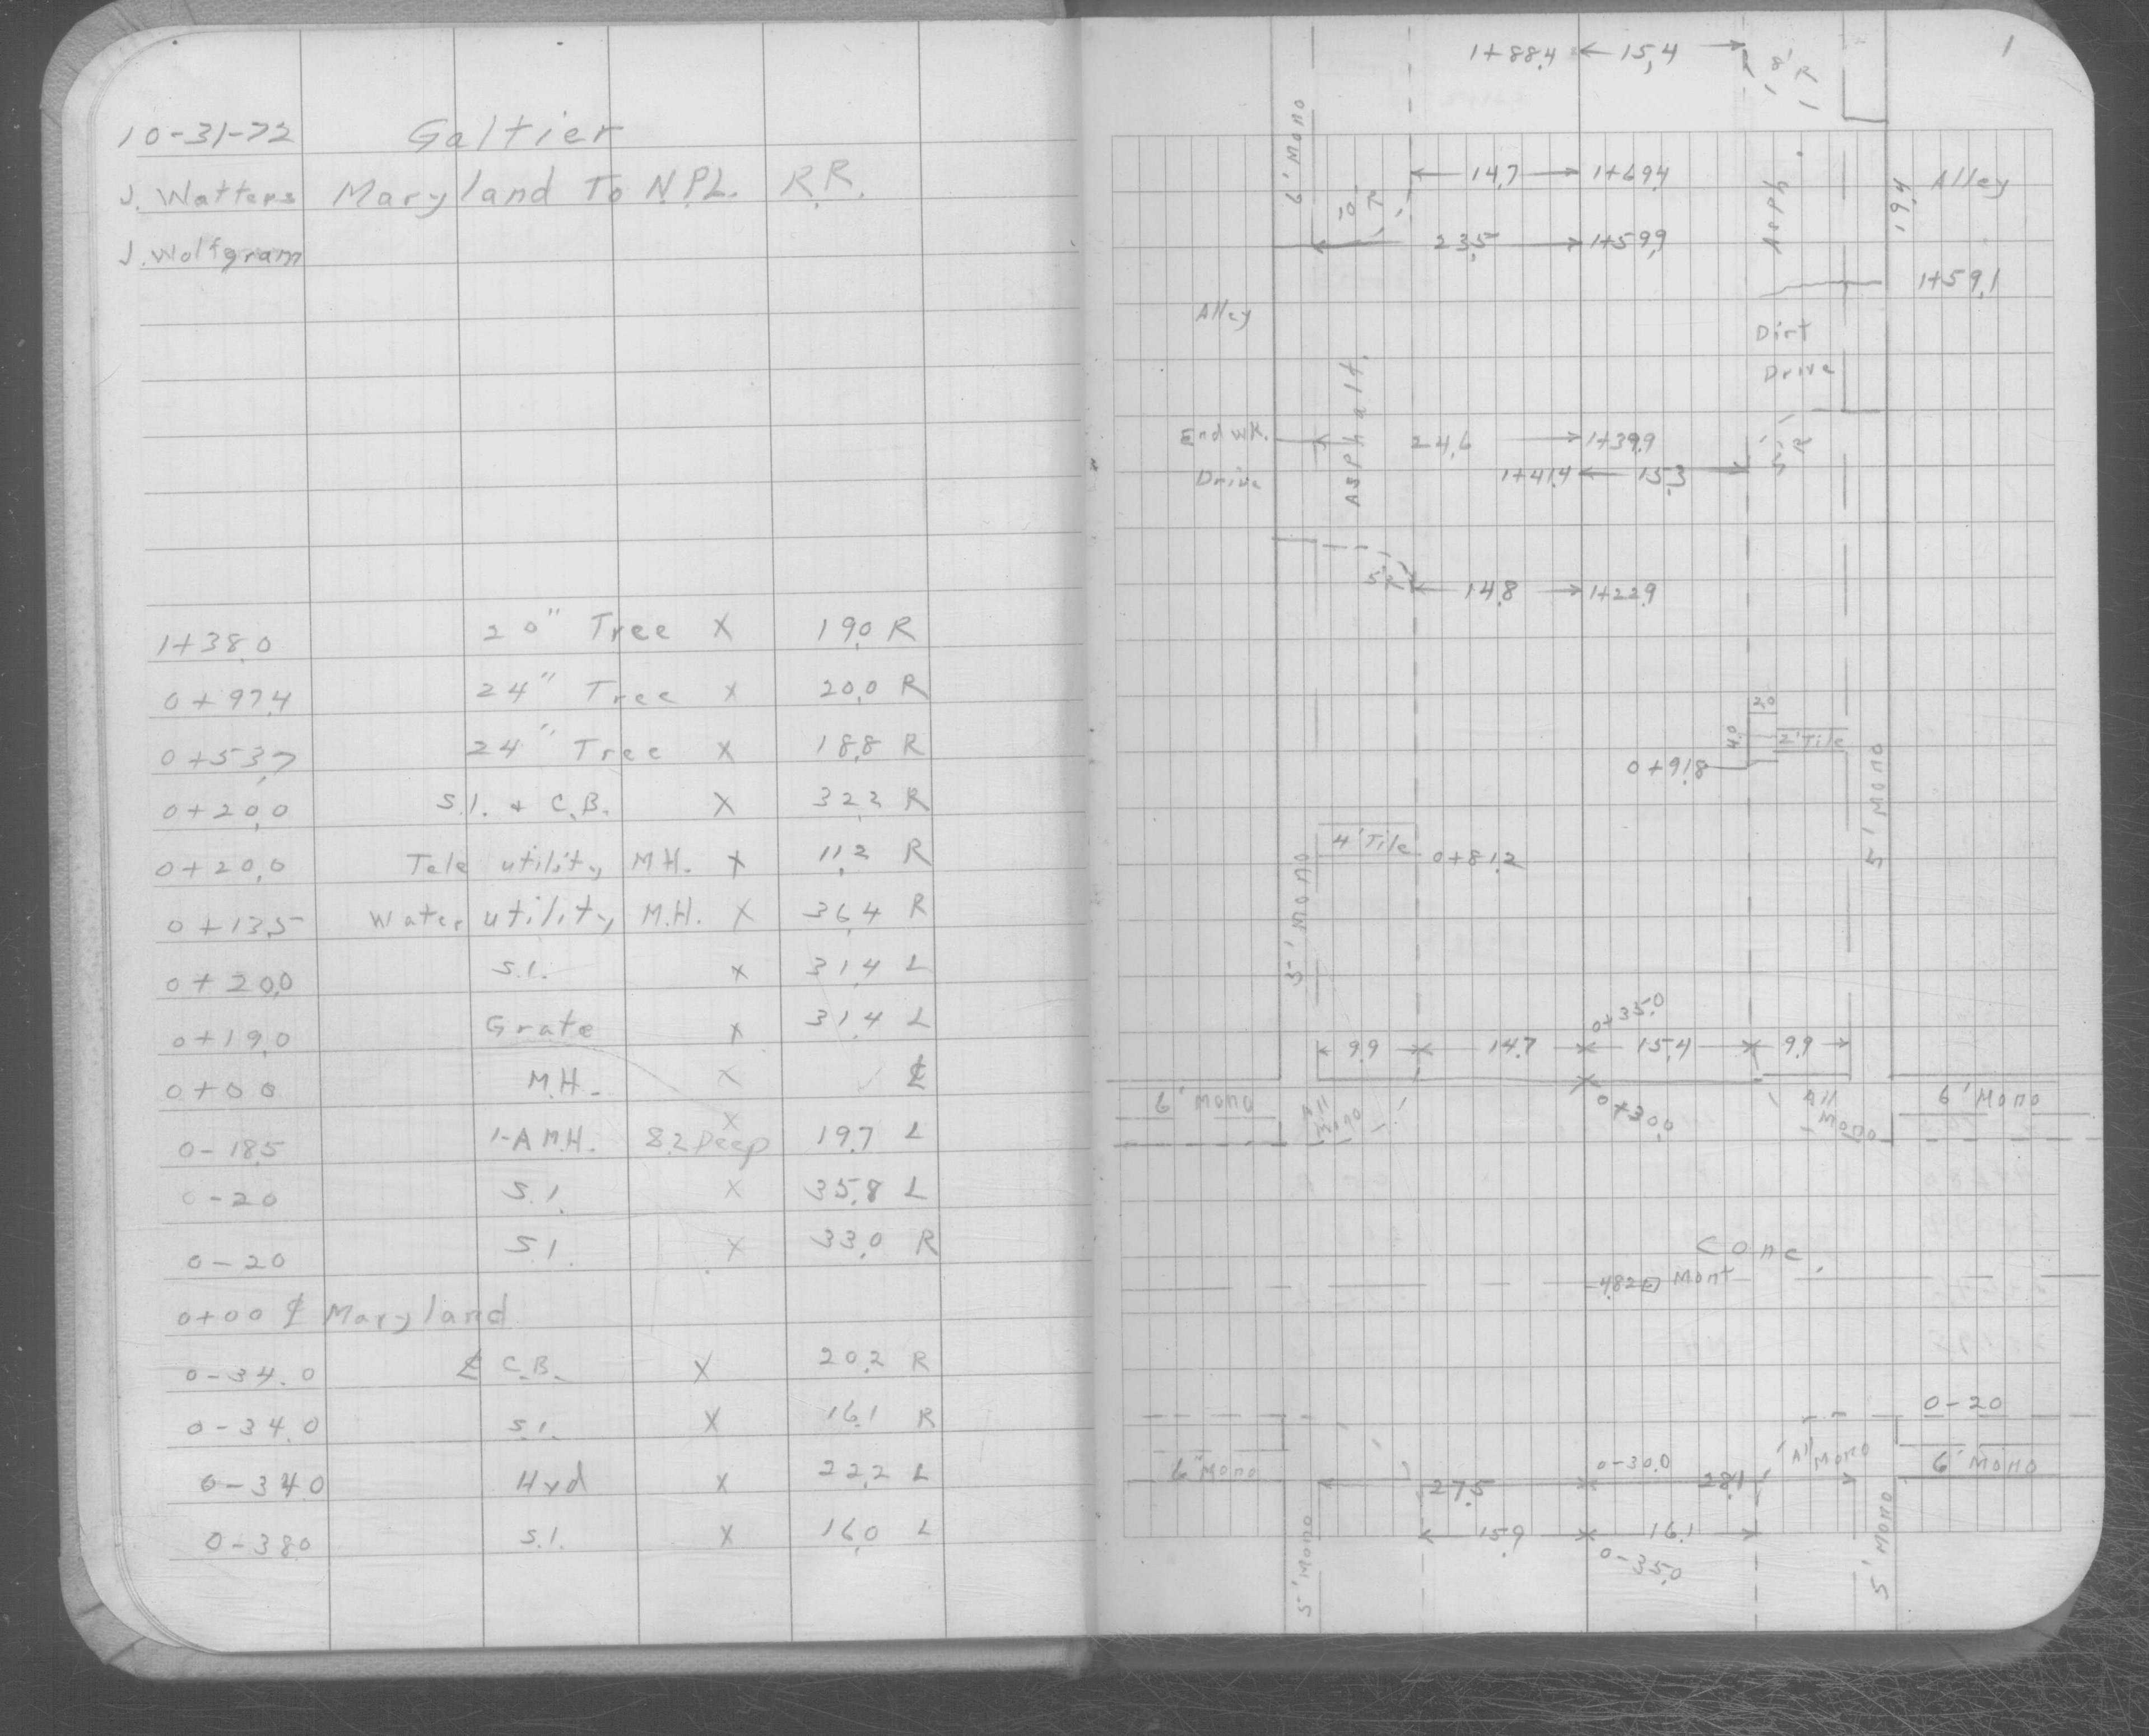 10-31-72 Galtier
J. Watters Maryland To N.P.L. R.R.
J. Wolfgram
1+38.0 20" Tree X 19.0 R
0+97.4 24" Tree X 20.0 R
0+53.7 24" Tree X 18.8 R
0+20.0 S.I. + C.B. X 32.2 R
0+20.0 Tele utility M.H. X 11.2 R
0+13.5 Water utility M.H. X 36.4 R
0+20.0 S.I. X 31.4 L
0+19.0 Grate X 31.4 L
0+00 M.H. X ℄
0-18.5 1-A M.H. 8.2 Deep X 19.7 L
0-20 S.I. X 35.8 L
0-20 S.I. X 33.0 R
0+00 ℄ Maryland
0-34.0 ℄ C.B. X 20.2 R
0-34.0 S.I. X 16.1 R
0-34.0 Hyd X 22.2 L
0-38.0 S.I. X 16.0 L
1
1+88.4 15.4 8' R
6' Mono 14.7 1+69.4 Asph. 19.4 Alley
10' R
23.5 1+59.9
1+59.1
Alley
Dirt
Drive
Asphalt
End WK. 24.6 1+39.9
Drive 1+41.4 15.3 5' R
5' R 14.8 1+22.9
2.0
4.0 2' Tile
0+91.8
5' Mono
4' Tile 0+81.2
5' Mono
0+35.0
9.9 14.7 15.4 9.9
6' Mono All Mono 0+30.0 All Mono 6' Mono
Conc.
4.82 Mont
0-20
6' Mono 0-30.0 All Mono 6' Mono
27.5 28.1
5' Mono 15.9 16.1 5' Mono
0-35.0